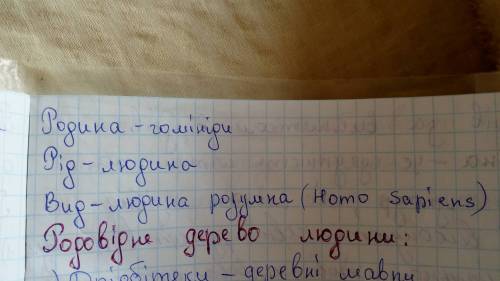 Родина - гомініди
Рід - людина
Вид - людина розумна (Homo sapiens)
Родовідне дерево людини:
) Дріопітеки - деревні мавпи